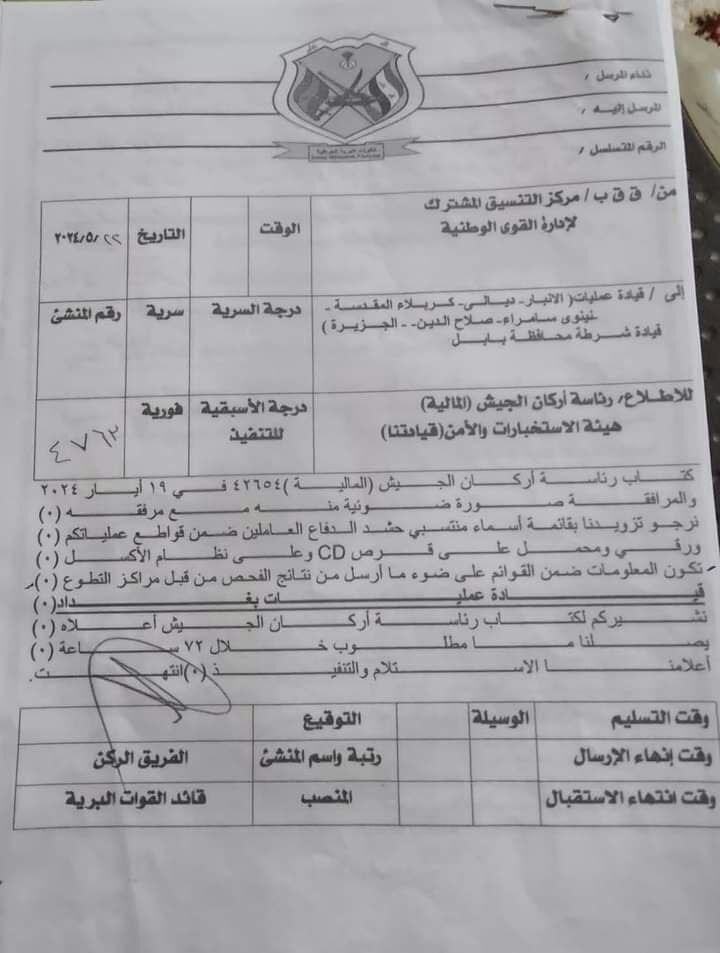 نداء المرسل /
المرسل إليه /
الرقم المتسلسل /
من/ ق ق ب / مركز التنسيق المشترك
لإدارة القوى الوطنية
الوقت
التاريخ
٢٠٢٤/٥/٢٢
إلى / قيادة عمليات( الانبار- ديالى- كربلاء المقدسة -
نينوى سامراء- صلاح الدين-- الجزيرة )
قيادة شرطة محافظة بابل
درجة السرية
سرية
رقم المنشئ
للاطلاع/ رئاسة أركان الجيش (المالية)
هيئة الاستخبارات والأمن(قيادتنا)
درجة الأسبقية
للتنفيذ
فورية
٤٧٦٣
كتاب رئاسة أركان الجيش (المالية )٤٢٦٥٤ في ١٩ أيار ٢٠٢٤
والمرافقة صورة ضوئية منه مع مرفقه (٠)
نرجو تزويدنا بقائمة أسماء منتسبي حشد الدفاع العاملين ضمن قواطع عملياتكم (٠)
ورقي ومحمل على قرص CD وعلى نظام الأكسل (٠)
تكون المعلومات ضمن القوائم على ضوء ما أرسل من نتائج الفحص من قبل مراكز التطوع (٠)
قيادة عمليات بغداد(٠)
نشيركم لكتاب رئاسة أركان الجيش أعلاه (٠)
يصلنا ما مطلوب خلال ٧٢ ساعة (٠)
أعلمنا الاستلام والتنفيذ (٠)انتهت.
وقت التسليم
الوسيلة
التوقيع
وقت إنهاء الإرسال
رتبة واسم المنشئ
الفريق الركن
وقت انتهاء الاستقبال
المنصب
قائد القوات البرية